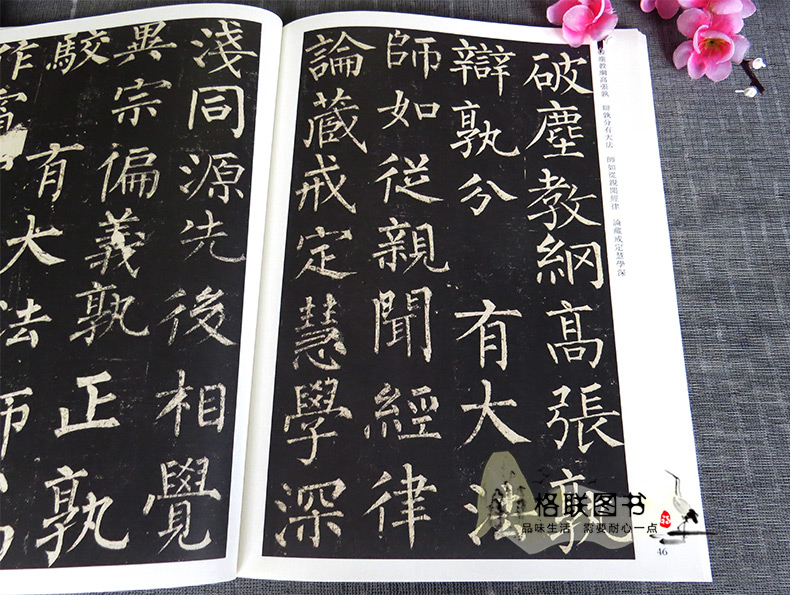 塵教綱高張孰 辯孰分有大法 師如從親聞經律 論藏戒定慧學深
破塵教綱高張孰
辯孰分 有大法
師如從親聞經律
論藏戒定慧學深
46
淺同源先後相覺
異宗偏義孰正孰
駮 有大法師
作
格联图书
品味生活 需要耐心一点